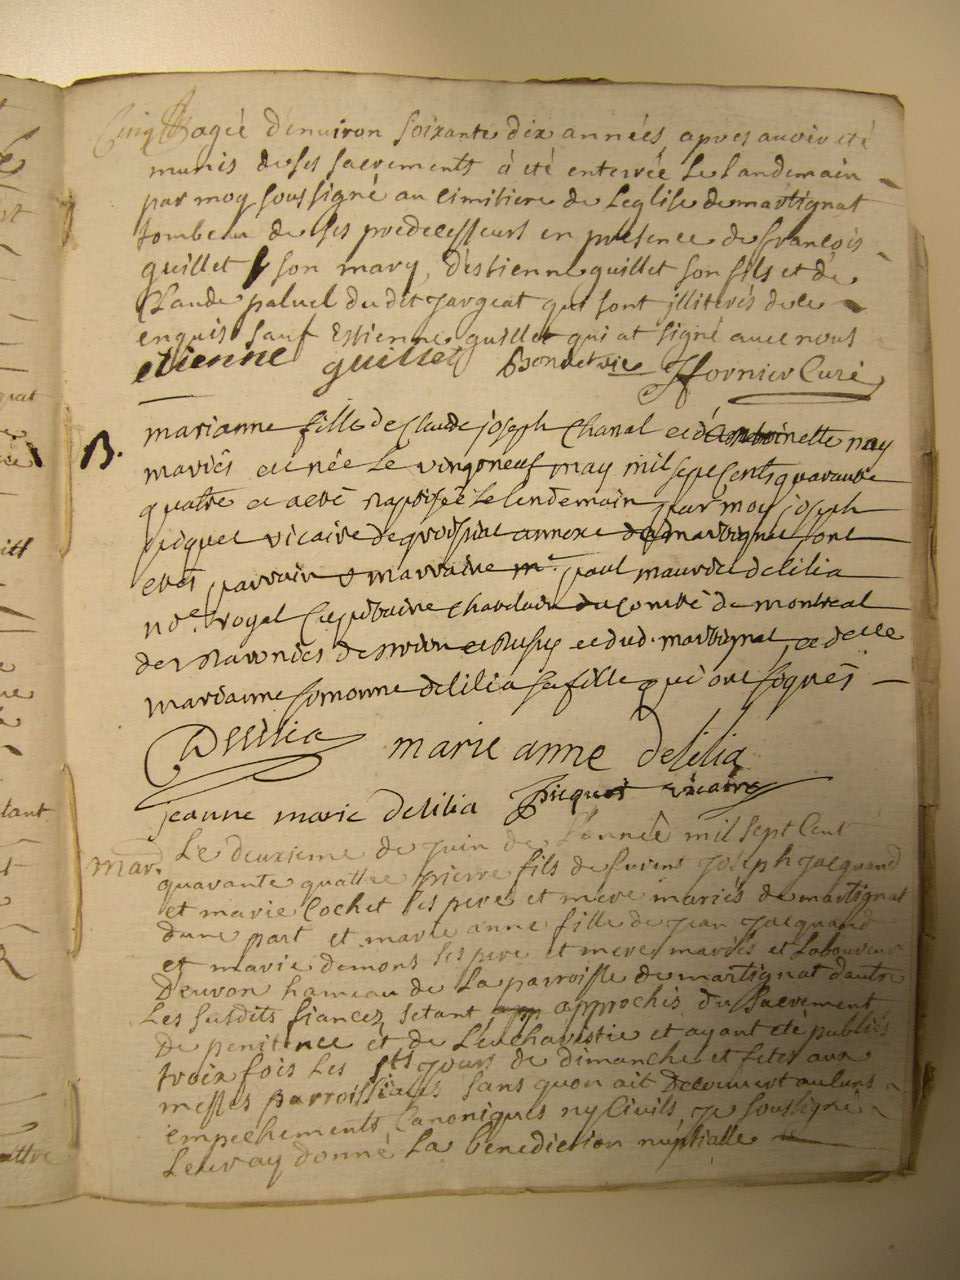 agée d'environ soixante dix années, apres avoir eté
munis de ses sacrements à été enterrée le landemain
par moy soussigné au cimitiere de Leglise de martignat
tombeau de ses predecesseurs en presence de francois
guillet son mary, d'estienne guillet son fils et de
Claude paluel dudit jargeat qui sont illiterés de ce
enquis sauf Estienne guillet qui at signé avec nous
etienne guillet Bonnetvie ffornier Curé
B. marianne fille de Claude joseph Chanal et d'Anthoinette nay
mariés et née le vingt neuf may mil sept cents quarante
quatre et a eté baptisée le lendemain par moy joseph
picquet vicaire de groissiat annexe de martignat ont
etés parrain & marraine mr. paul maurice delilia
nore. royal Capitaine chatelain du Comté de montreal
des Baronnies de et dud. martignat, et delle
marianne simonne delilia sa fille qui ont signés
Delilia marie anne delilia
jeanne marie delilia Picquet vicaire
mar. Le deuxieme de juin de l'année mil sept Cent
quarante quattre pierre fils de furent joseph jacquand
et marie Cochet ses pere et mere mariés de martignat
dune part et marie anne fille de jean jacquand
et marie demons ses pere et mere mariés et Laboureurs
D'euron hameau de La parroisse de martignat d'autre
Les susdits fiancez setant approchés du Sacrement
De penitence et de Leucharistie et ayant eté publiés
trois fois Les jours de dimanche et fetes aux
messes parroissiales sans quon ait Decouvert aucuns
empechements Canoniques ny Civils, je soussigné
Leur ay donné La benediction nuptialle